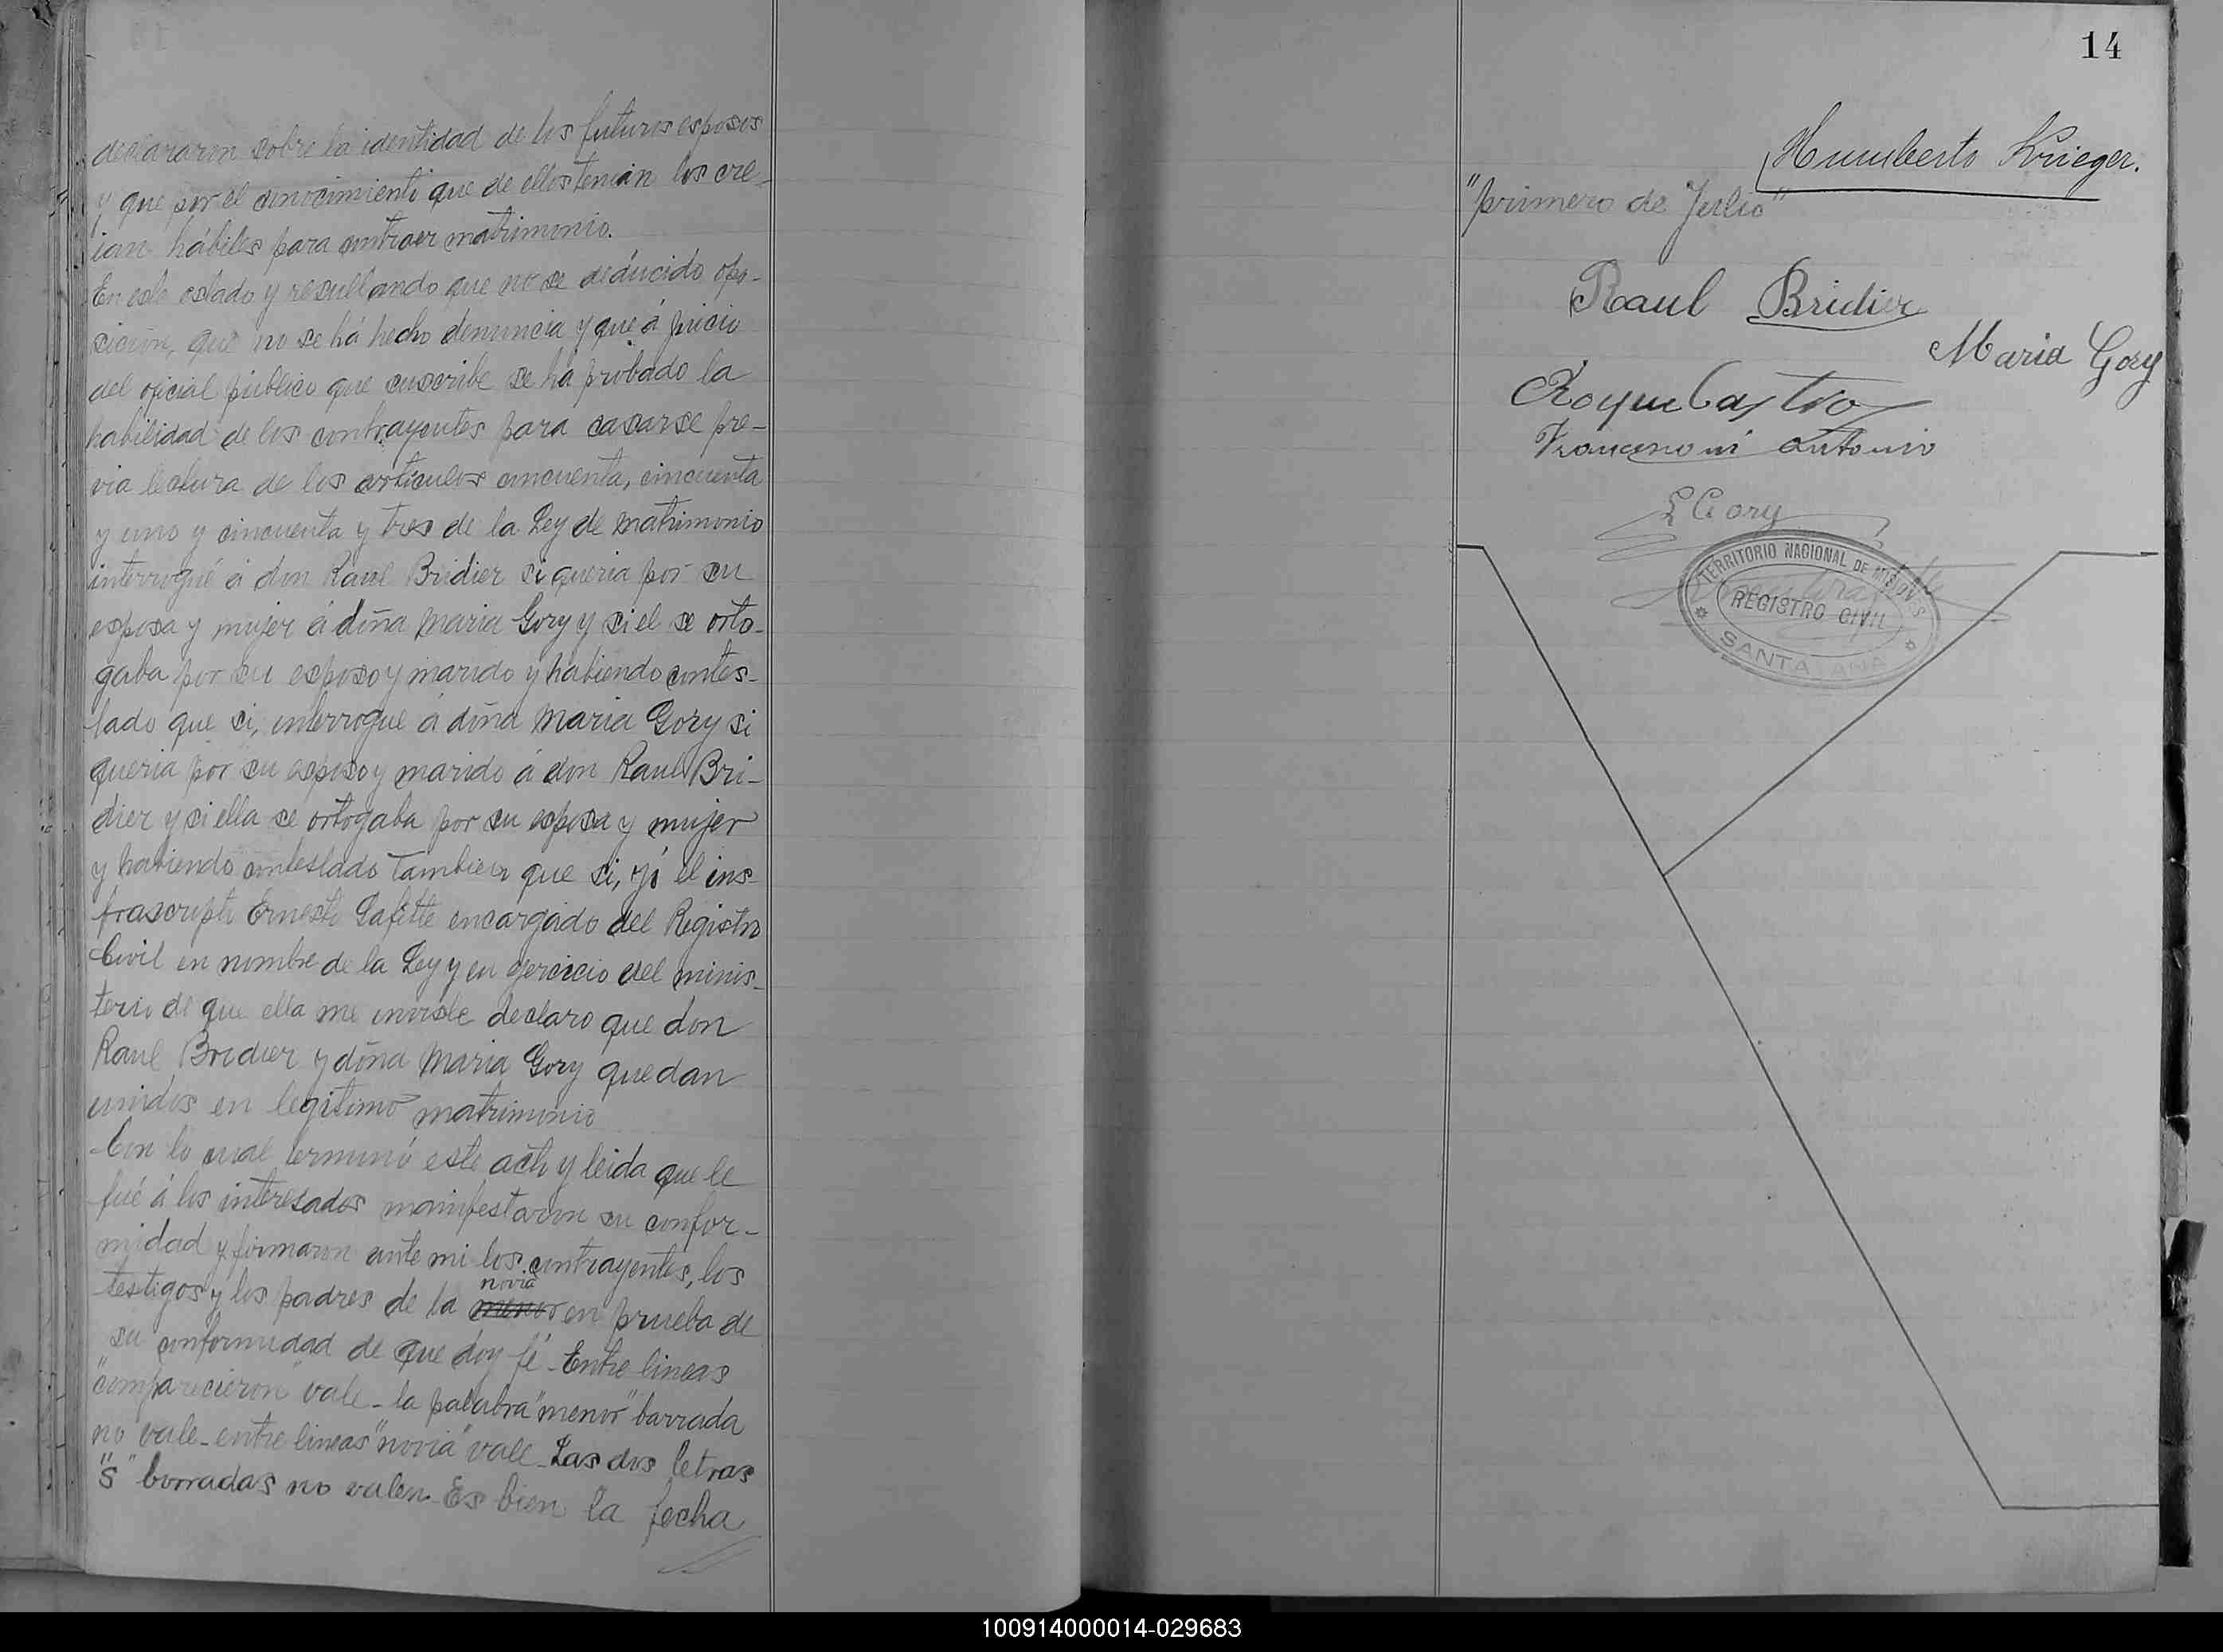 declararon sobre la identidad de los futuros esposos
y que por el conocimiento que de ellos tenian los cre-
ian hábiles para contraer matrimonio.
En este estado y resultando que no se dedúcido opo-
sicion, que no se há hecho denuncia y que á juicio
del oficial público que suscribe se há probado la
habilidad de los contrayentes para casarse pre-
via lectura de los articulos cincuenta, cincuenta
y uno y cincuenta y tres de la Ley de matrimonio
interrogué á don Raul Bridier si queria por su
esposa y mujer á doña Maria Gory y si el se orto-
gaba por su esposo y marido y habiendo contes-
tado que si, interrogue á doña Maria Gory si
queria por su esposo y marido á don Raul Bri-
dier y si ella se ortogaba por su esposa y mujer
y habiendo contestado tambien que si, yó el ins-
frascripto Ernesto Lafitte encargado del Registro
Civil en nombre de la Ley y en ejercicio del minis-
terio de que ella me inviste declaro que don
Raul Bridier y doña Maria Gory quedan
unidos en legitimo matrimonio
Con lo cual terminó este acto y leida que le
fué á los interesados manifestaron su confor-
midad y firmaron ante mi los contrayentes, los
novia
testigos y los padres de la menor en prueba de
su conformidad de que dóy fé - Entre lineas
"comparecieron" vale - la palabra "menor" barrada
no vale - entre lineas "novia" vale - Las dos letras
"s" borradas no valen - Es bien la fecha
14
Humberto Krieger.
"primero de Julio"
Raul Bridier
Maria Gory
Roque Castro
Antonio
E Gory
TERRITORIO NACIONAL DE MISIONES
REGISTRO CIVIL
SANTA ANA
100914000014-029683